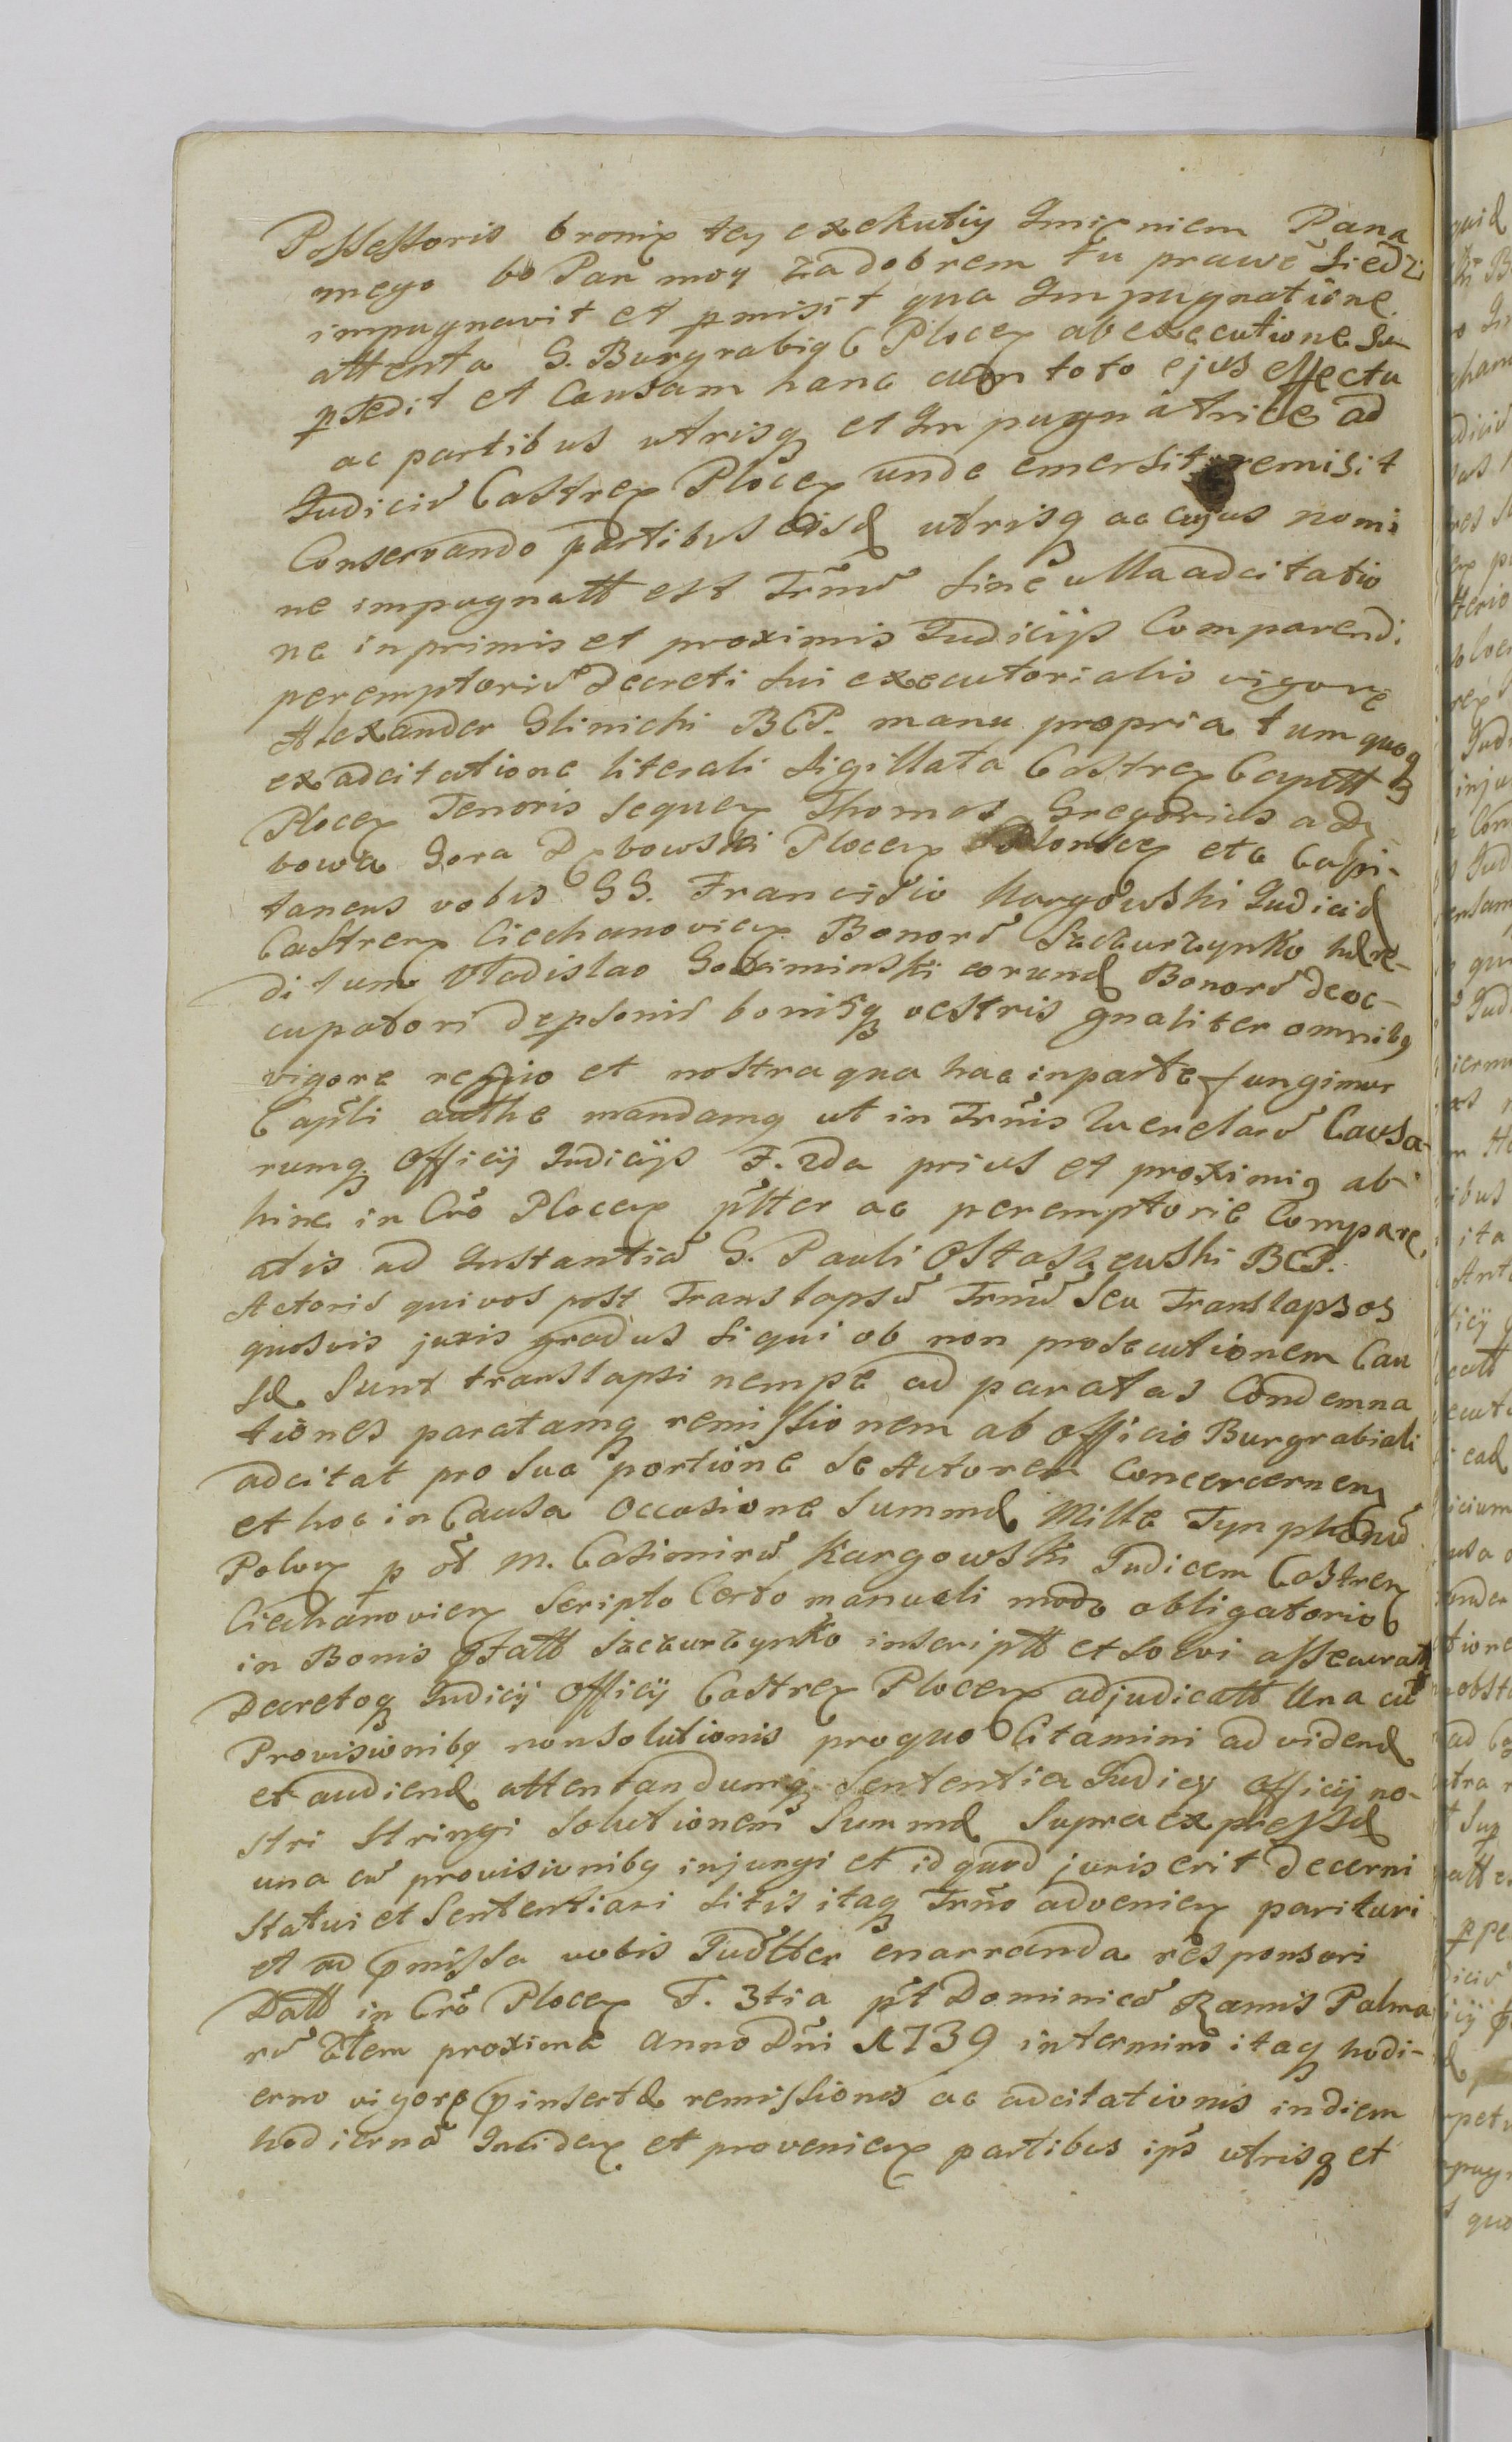 Possessoris bronię tey exekutiy Imięniem Pana
mego bo Pan moy za dobrem tu prawe Siedzi
impugnavit et pmisit qua Impugnatione
attenta G. Burgrabig C Plocen ab executione Su-
pstedit et Causam hanc cum toto ejus effectu
ac partibus utrisq et Impugnatrice ad
Judiciu Castren Plocen unde emersit remisit
Conservando partibus eisd utrisq ac cujus nomi
ne impugnatt est Trmu Sine ulla adcitatio
ne in primis et proximis Judicijs Comparendi
peremptoriu Decreti sui executorialis vigore
Alexander Glinicki BCP. manu propria tum quoq
ex adcitatione literali Sigillata Castren Capitt
Plocen Tenoris Sequen Thomas Gregorius a Dę
bowa Gora Dębowski Plocen Plonscen etc Capi-
taneus vobis GG. Francisco Kargowski Judicid
Castren Ciechanovien Bonoru Szczurzynko hære-
ditum Vladislao Gosziminski eorund Bonoru deoc-
cupatori Depsonis bonisq vestris gnaliter omnibg
vigore regio et nostra qua hac in parte fungimur
Capli authe mandamg ut in Trmis Querelaru Causa-
rumq Officij Judicijs F. 2da prius et proximig ab
hinc in Cro Plocen pltter ac peremptorie Compare
atis ad Instantia G. Pauli Ostaszewski BCP.
Actoris qui vos post Translapsu Trmu Seu Translapsos
quosvis juris gradus Si qui ob non prosecutionem Cau
sæ Sunt translapsi nempe ad paratas Condemna
tiones paratamq remissionem ab officio Burgrabiali
adcitat pro sua portione se Actorem Concercernen
et hoc in Causa Occasione Summæ Mille Tynphonu
Polon p od M. Casimiru Kargowski Judicem Castren
Ciechanovien Scripto Certo manuali modo obligatorio
in Bonis pstatt Szczurzynko inscriptt et Solvi assecuratt
Decretoq Judicij Officij Castren Plocen adjudicatt Una cu
Provisionibg non solutionis pro quo Citamini ad vidend
et audiend attentandumq Sententia Judicij Officij no-
stri Stringi Solutionem Summæ Supra expressæ
una cu provisionibg injungi et id quod juris erit decerni
Statui et Sententiari Sitis itaq Trmo advenien parituri
et ad pmissa vobis Judtter enarranda responsuri
Datt in Cro Plocen F. 3tia pt Dominicu Ramis Palma
ru Item proxime Anno Dni 1739 in termino itaq hodi-
erno vigore pinsertæ remissionis ac adcitationis in diem
hodierna Inciden et provenien partibus ips utrisq et